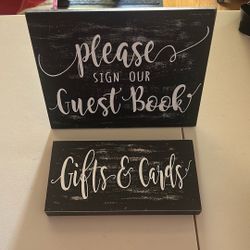 please
SIGN OUR
Guest Book
Gifts & Cards